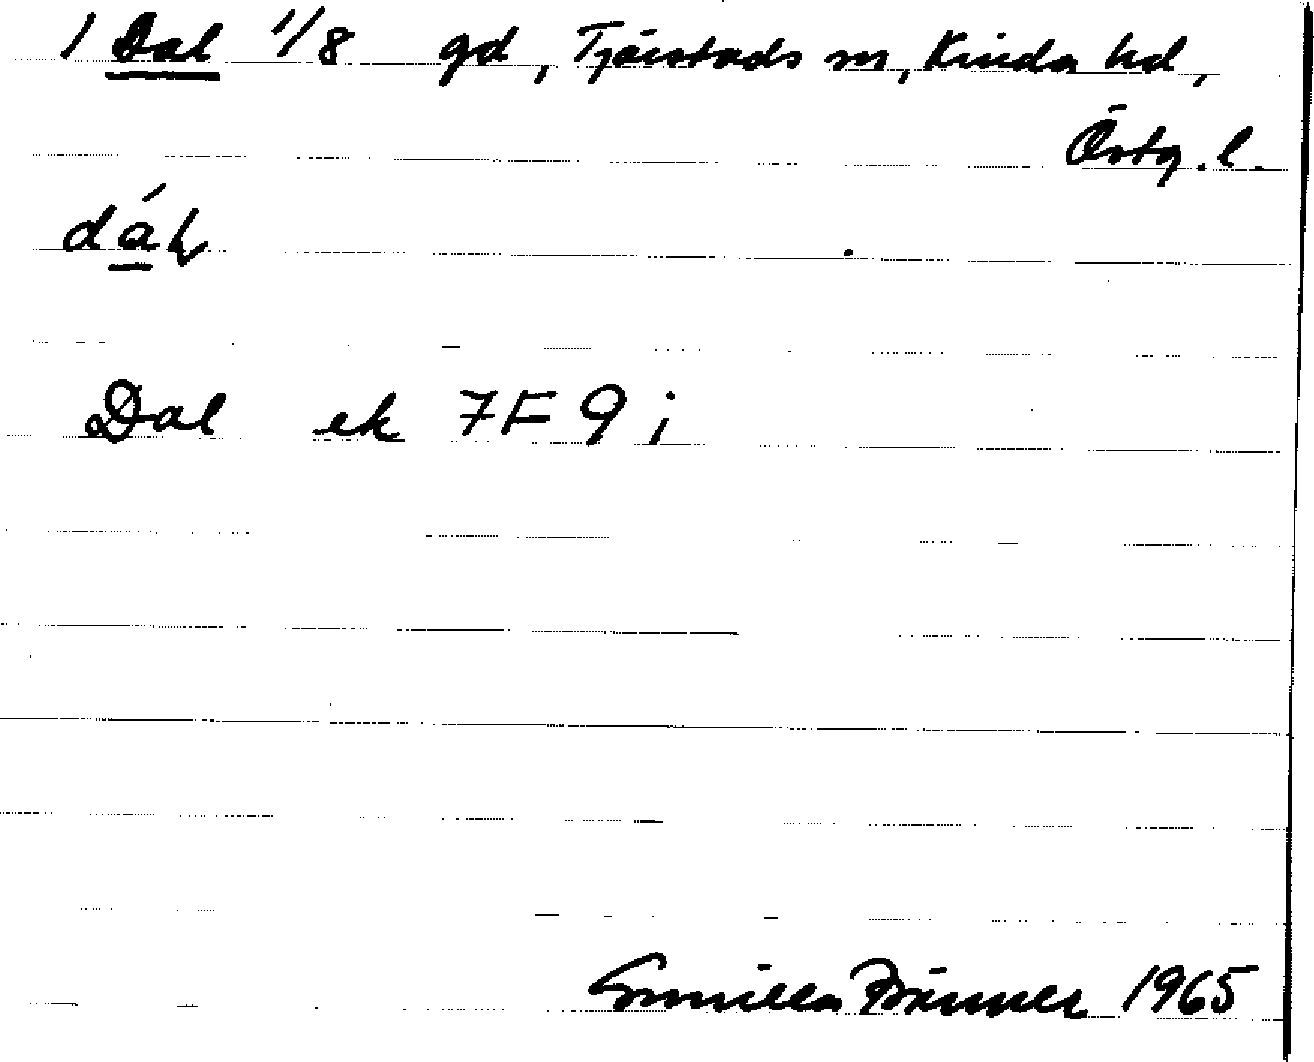 1 Dal 1/8 gd, Tjärstads sn, Kinda hd,
Östg. l.
Dal ek 7F 9 i
Gunilla 1965